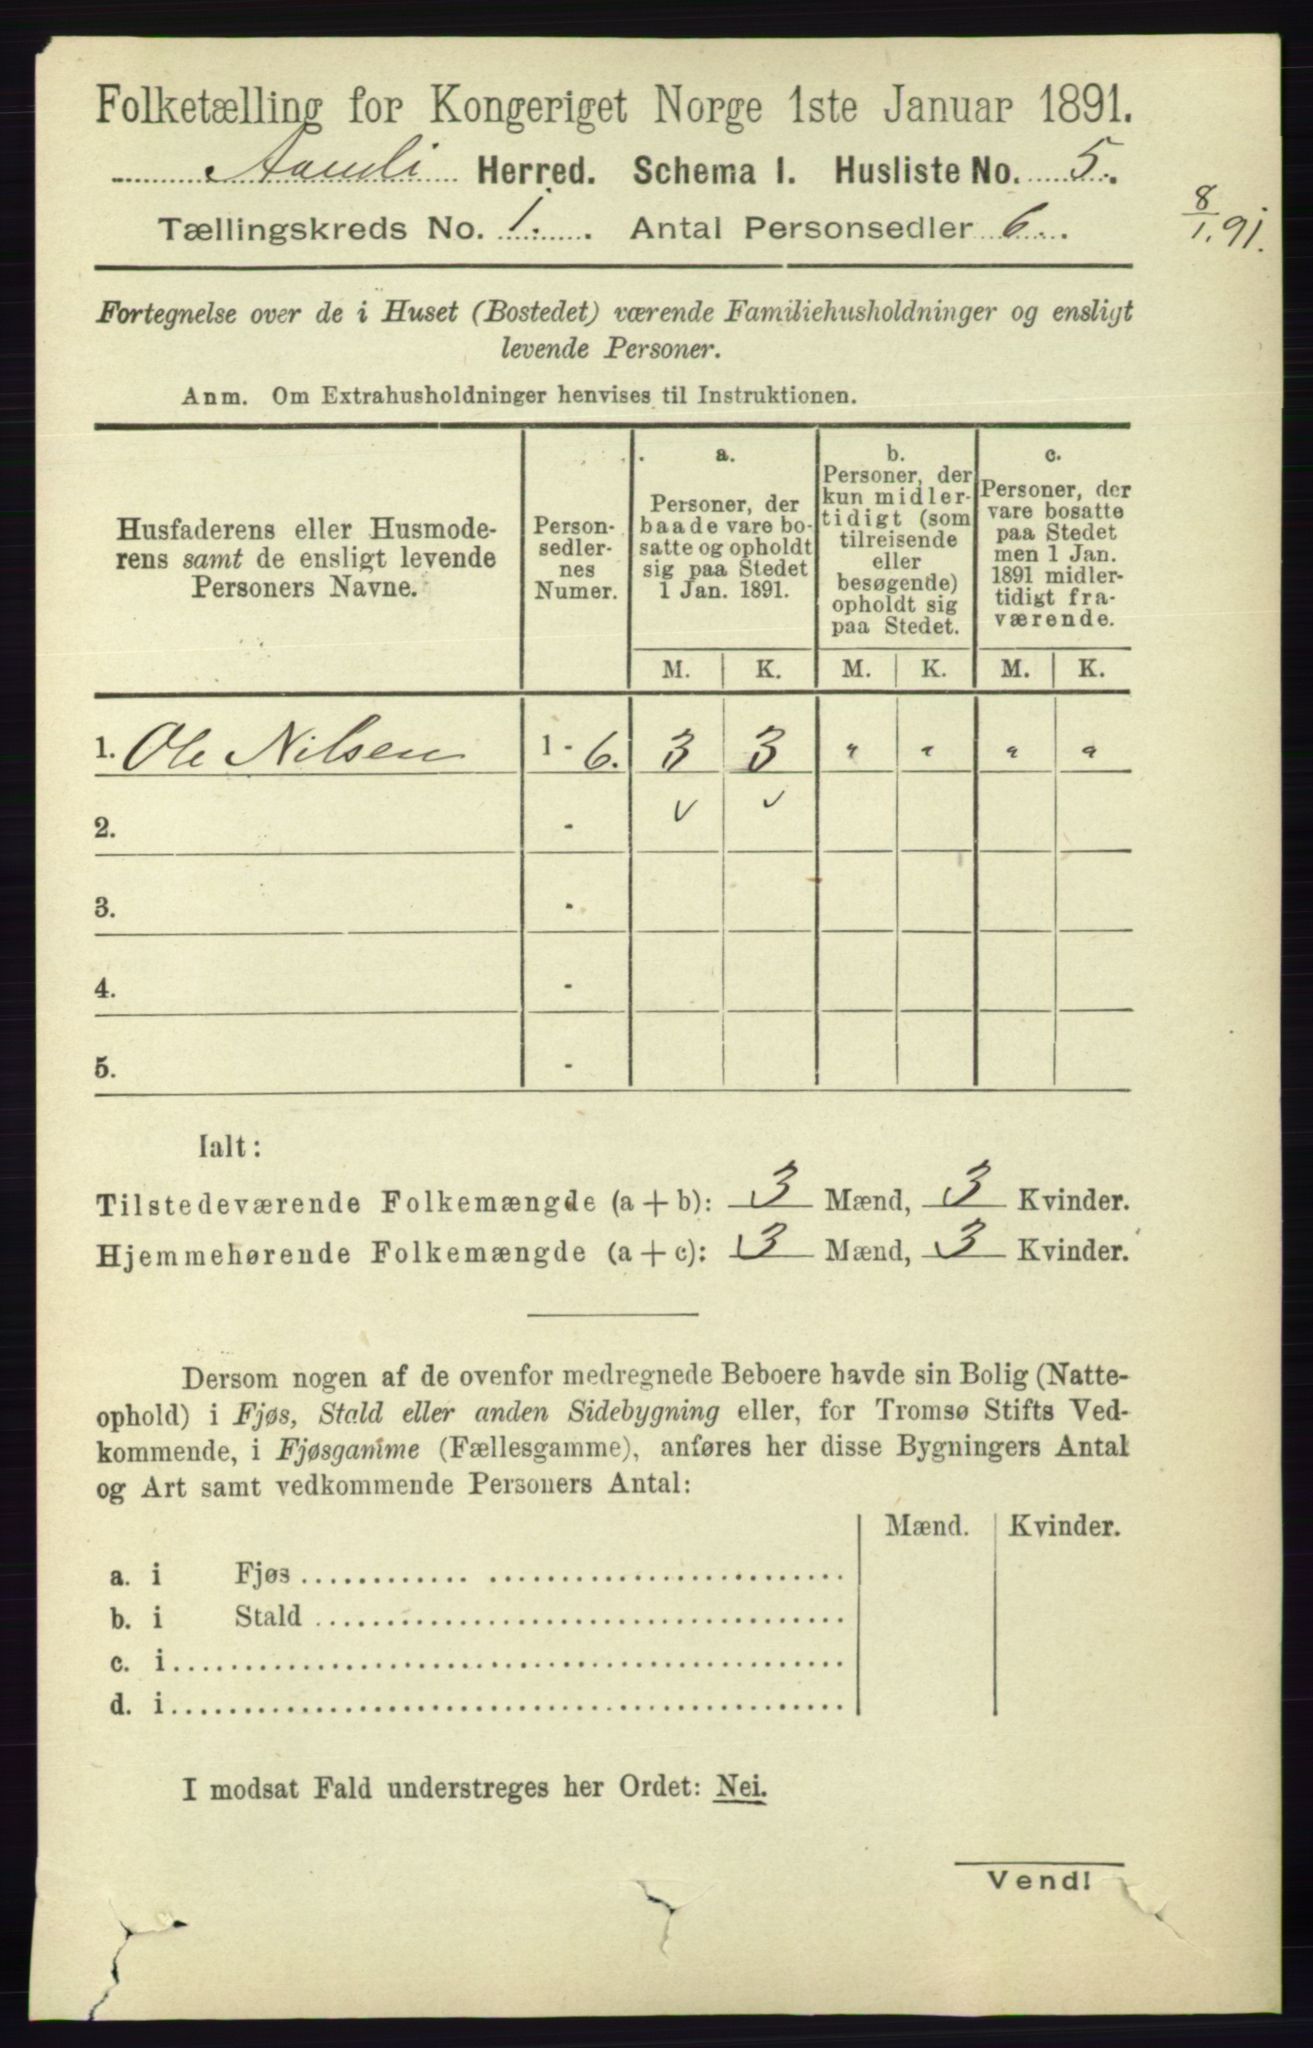 Folketælling for Kongeriget Norge 1ste Januar 1891.
Aamli Herred. Schema I. Husliste No. 5.
Tællingskreds No. 1. Antal Personsedler 6.
8/1.91.
Fortegnelse over de i Huset (Bostedet) værende Familiehusholdninger og ensligt
levende Personer.
Anm. Om Extrahusholdninger henvises til Instruktionen.
Husfaderens eller Husmode-
rens samt de ensligt levende
Personers Navne.
Person-
sedler-
nes
Numer.
a.
Personer, der
baade vare bo-
satte og opholdt
sig paa Stedet
1 Jan. 1891.
b.
Personer, der
kun midler-
tidigt (som
tilreisende
eller
besøgende)
opholdt sig
paa Stedet.
c.
Personer, der
vare bosatte
paa Stedet
men 1 Jan.
1891 midler-
tidigt fra-
værende.
M. K. M. K. M. K.
1. Ole Nilsen 1 - 6. 3 3 " " " "
2. - ✓ ✓
3. -
4. -
5. -
Ialt:
Tilstedeværende Folkemængde (a + b): 3 Mænd, 3 Kvinder.
Hjemmehørende Folkemængde (a + c): 3 Mænd, 3 Kvinder.
Dersom nogen af de ovenfor medregnede Beboere havde sin Bolig (Natte-
ophold) i Fjøs, Stald eller anden Sidebygning eller, for Tromsø Stifts Ved-
kommende, i Fjøsgamme (Fællesgamme), anføres her disse Bygningers Antal
og Art samt vedkommende Personers Antal:
Mænd. Kvinder.
a. i Fjøs
b. i Stald
c. i
d. i
I modsat Fald understreges her Ordet: Nei.
Vend!